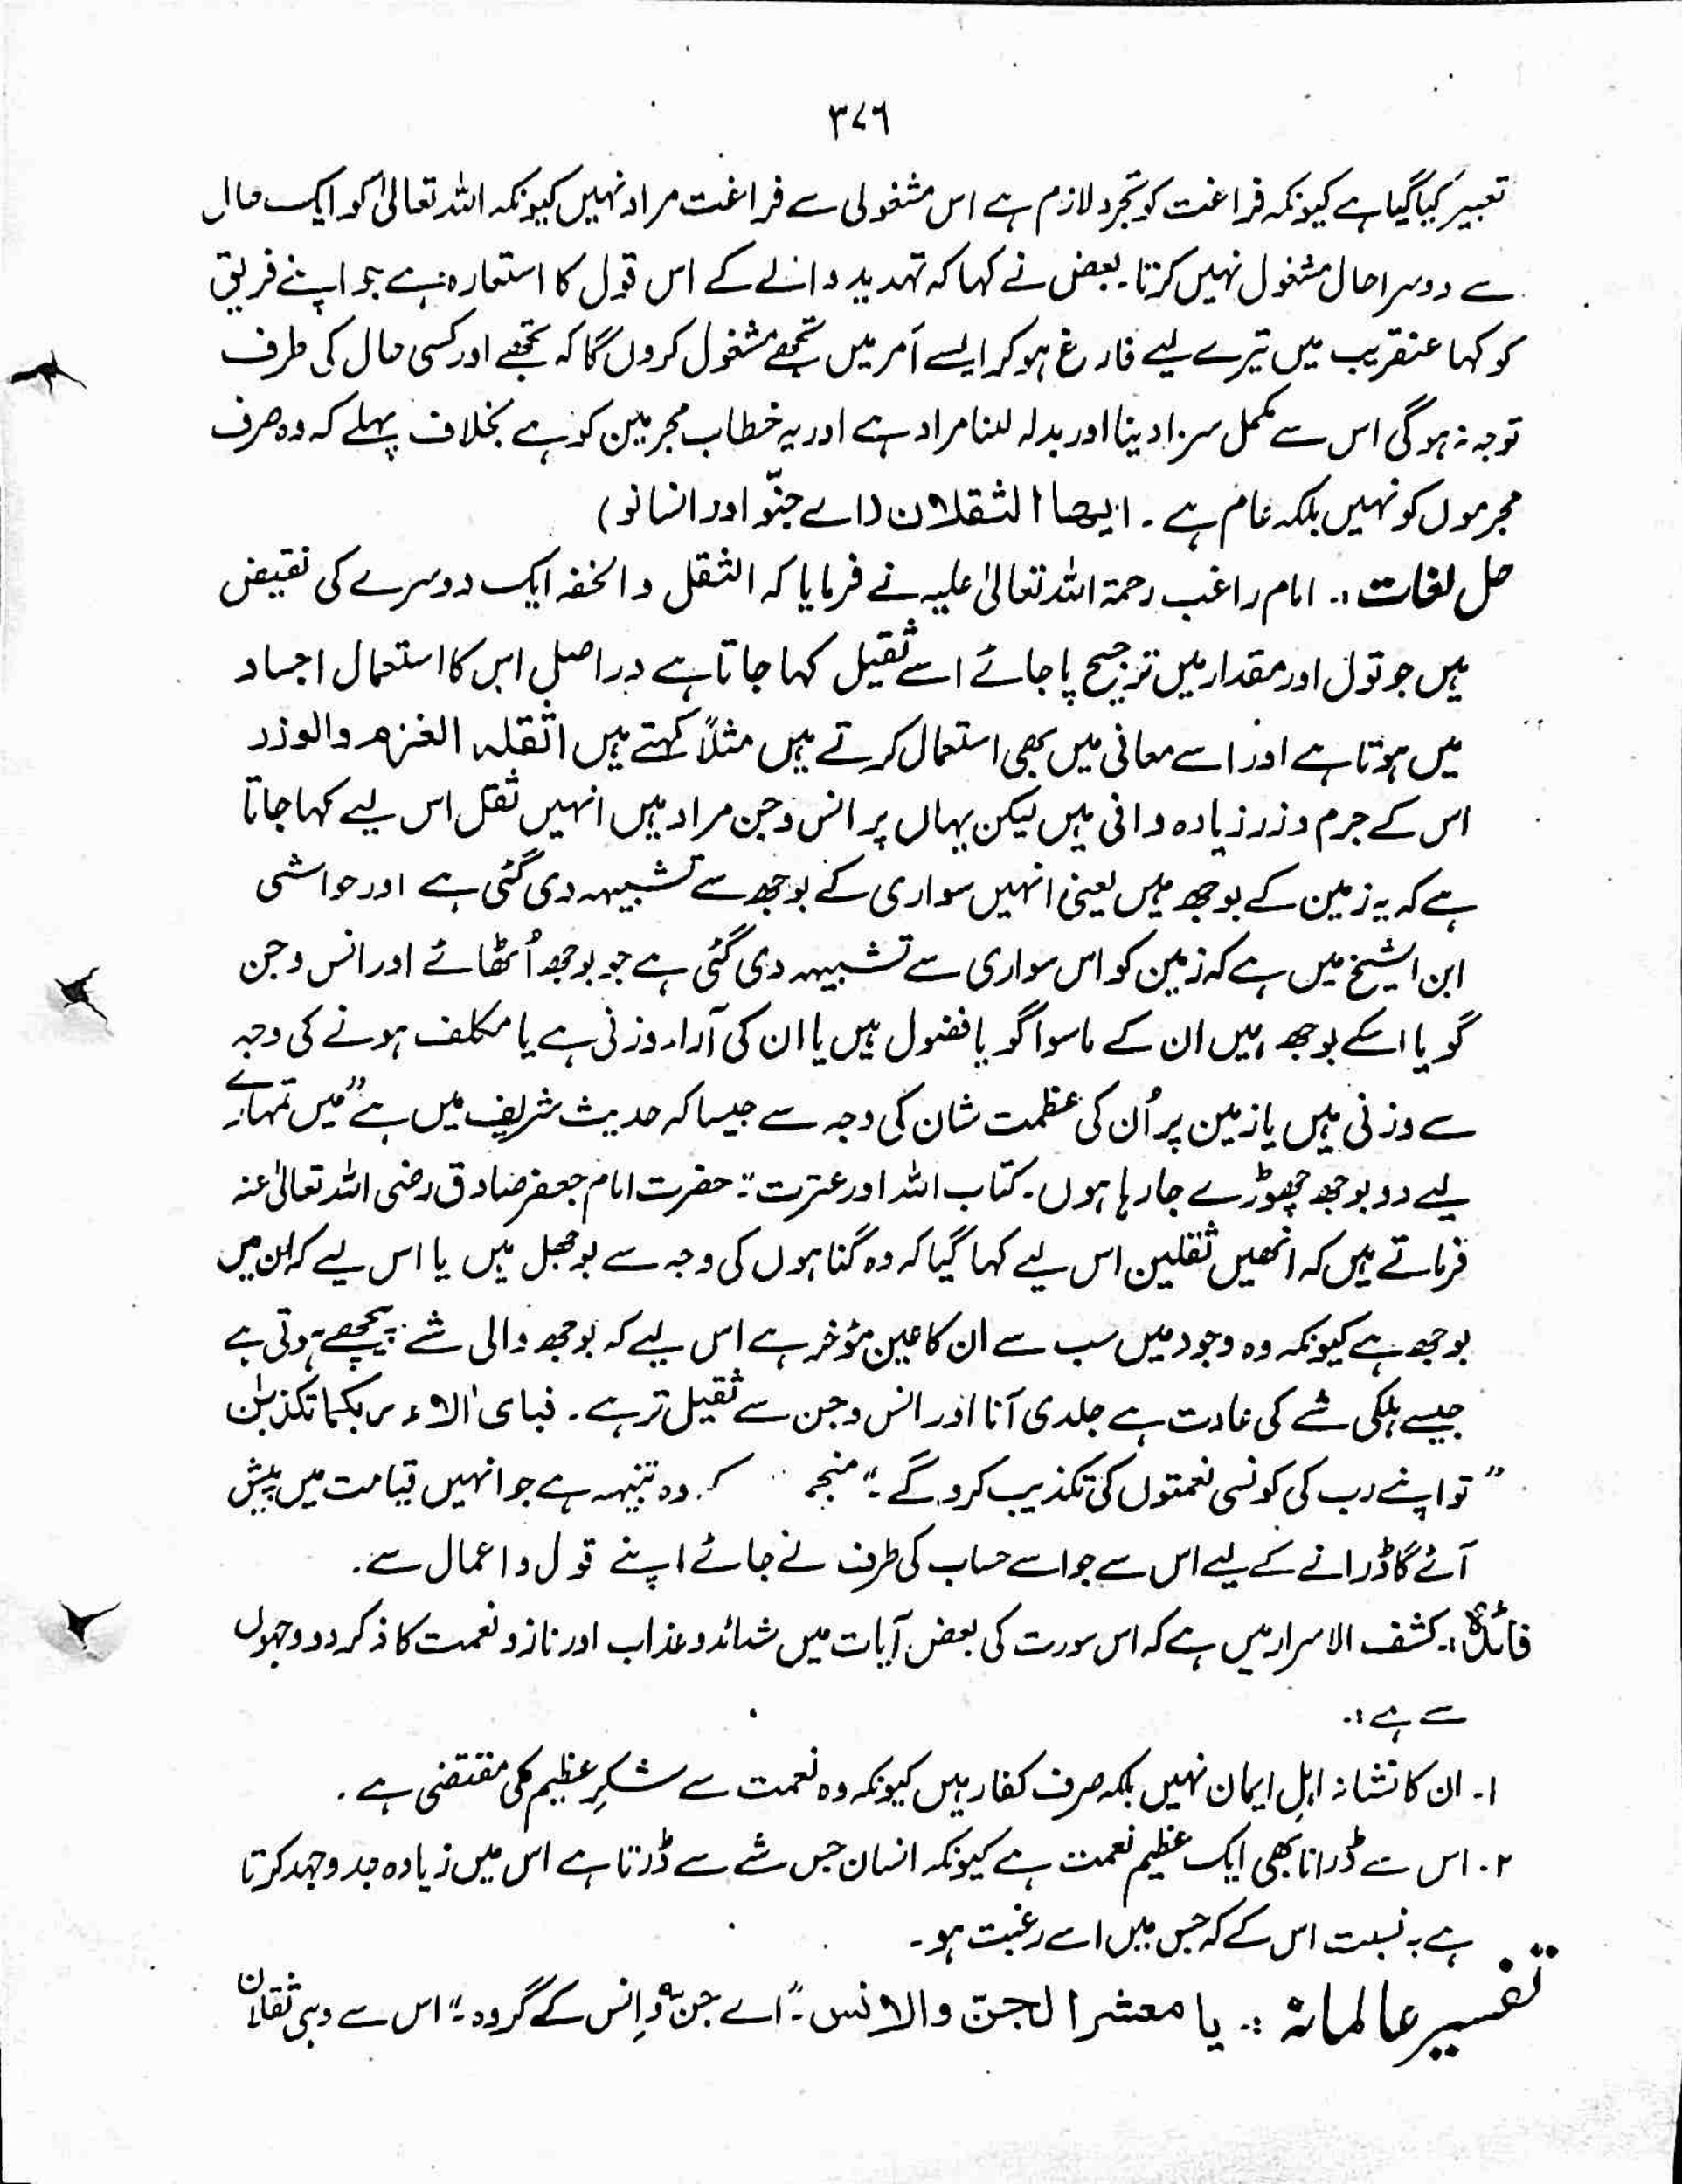 ۳۷۶
تعبیر کیا گیا ہے کیونکہ فراغت کو تجرد لازم ہے اس مشغولی سے فراغت مراد نہیں کیونکہ اللہ تعالیٰ کو ایک حال
سے دوسرا حال مشغول نہیں کرتا۔ بعض نے کہا کہ تہدید والے کے اس قول کا استعارہ ہے جو اپنے فریق
کو کہا عنقریب میں تیرے لیے فارغ ہو کر ایسے اَمر میں تجھے مشغول کروں گا کہ تجھے اور کسی حال کی طرف
توجہ نہ ہوگی اس سے مکمل سزا دینا اور بدلہ لینا مراد ہے اور یہ خطاب مجرمین کو ہے بخلاف پہلے کہ وہ صرف
مجرموں کو نہیں بلکہ عام ہے ۔ ایھا الثقلان (اے جنّو اور انسانو)
حل لغات :۔ امام راغب رحمۃ اللہ تعالیٰ علیہ نے فرمایا کہ الثقل و الخفہ ایک دوسرے کی نقیض
ہیں جو تول اور مقدار میں ترجیح پا جائے اسے ثقیل کہا جاتا ہے دراصل اس کا استعمال اجساد
میں ہوتا ہے اور اسے معانی میں بھی استعمال کرتے ہیں مثلاً کہتے ہیں اثقلہ الغزم والوزر
اس کے جرم وزر زیادہ وانی ہیں لیکن یہاں پر انس وجن مراد ہیں انہیں ثقل اس لیے کہا جاتا
ہے کہ یہ زمین کے بوجھ ہیں یعنی انہیں سواری کے بوجھ سے تشبیہہ دی گئی ہے اور حواشی
ابن الشیخ میں ہے کہ زمین کو اس سواری سے تشبیہہ دی گئی ہے جو بوجھ اُٹھائے اور انس وجن
گویا اسکے بوجھ ہیں ان کے ماسوا گویا فضول ہیں یا ان کی آراء وزنی ہے یا مکلف ہونے کی وجہ
سے وزنی ہیں یا زمین پر اُن کی عظمت شان کی وجہ سے جیسا کہ حدیث شریف میں ہے ”میں تمہارے
لیے دو بوجھ چھوڑے جا رہا ہوں۔ کتاب اللہ اور عترت“۔ حضرت امام جعفر صادق رضی اللہ تعالیٰ عنہ
فرماتے ہیں کہ انھیں ثقلین اس لیے کہا گیا کہ وہ گناہوں کی وجہ سے بوجھل ہیں یا اس لیے کہ ان میں
بوجھ ہے کیونکہ وہ وجود میں سب سے ان کا عین مؤخر ہے اس لیے کہ بوجھ والی شے پیچھے ہوتی ہے
جیسے ہلکی شے کی عادت ہے جلدی آنا اور انس وجن سے ثقیل تر ہے ۔ فبای اٰلاء ربکما تکذبٰن
”تو اپنے رب کی کونسی نعمتوں کی تکذیب کرو گے“۔ منجملہ کہ وہ تنبیہہ ہے جو انہیں قیامت میں پیش
آئے گا ڈرانے کے لیے اس سے جو اسے حساب کی طرف لے جائے اپنے قول و اعمال سے۔
فائدہ :۔ کشف الاسرار میں ہے کہ اس سورت کی بعض آیات میں شدائد و عذاب اور ناز و نعمت کا ذکر دو وجہوں
سے ہے :۔
۱۔ ان کا نشانہ اہلِ ایمان نہیں بلکہ صرف کفار ہیں کیونکہ وہ نعمت سے شکرِ عظیم کی مقتضی ہے ۔
۲۔ اس سے ڈرانا بھی ایک عظیم نعمت ہے کیونکہ انسان جس شے سے ڈرتا ہے اس میں زیادہ جدوجہد کرتا
ہے بہ نسبت اس کے کہ جس میں اسے رغبت ہو۔
تفسیر عالمانہ :۔ یا معشر الجن والانس۔ ”اے جنّ و اِنس کے گروہ“۔ اس سے وہی ثقلان